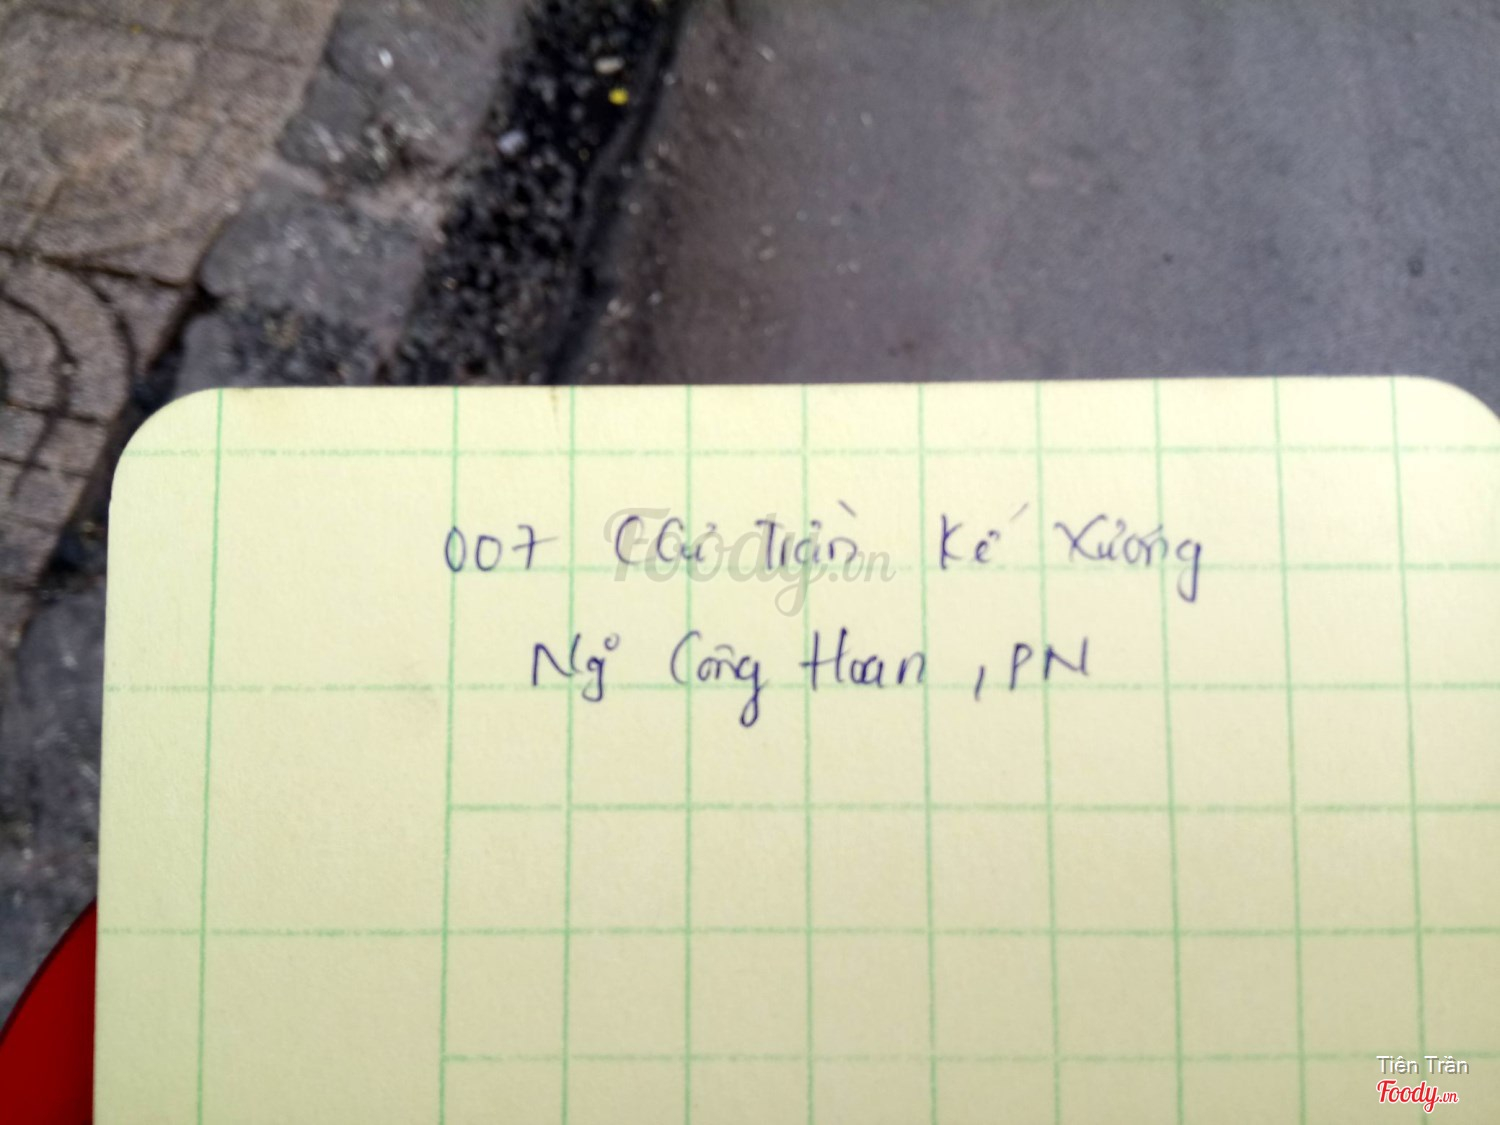 007 CCư Trần Kế Xương
Foody.vn
Ng Công Hoan, PN
Tiên Trần
Foody.vn